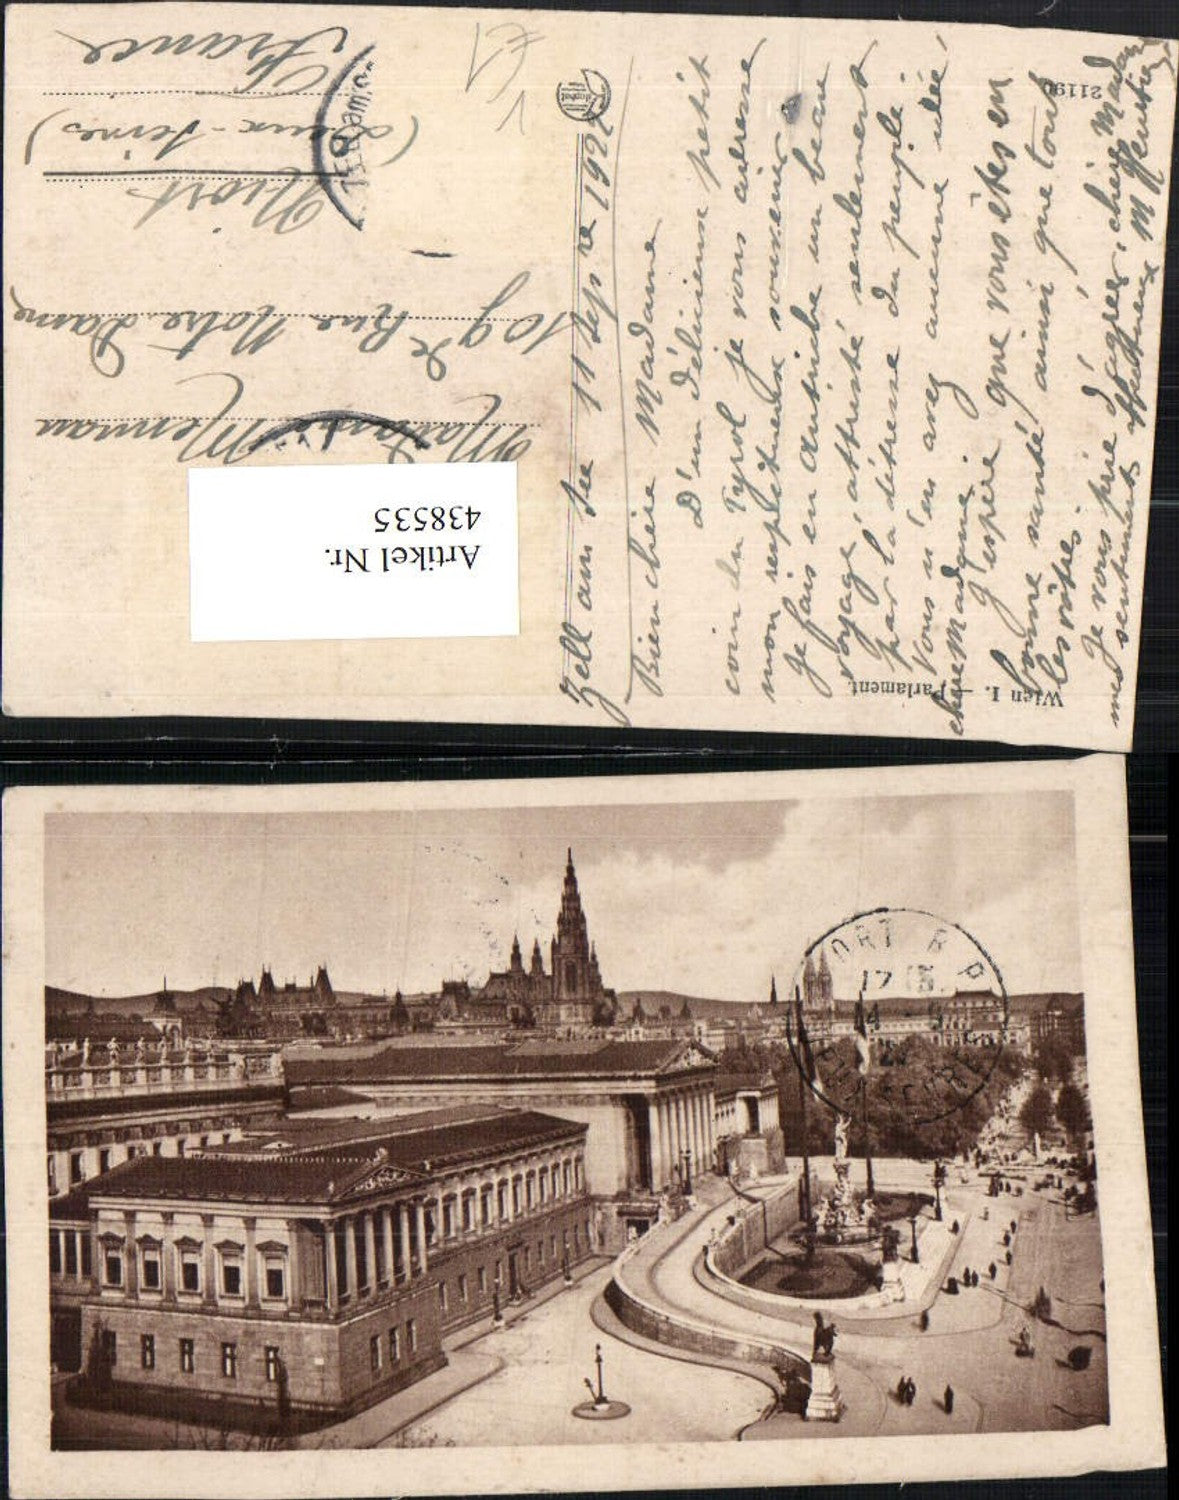 Zell am See 11 Sep re 192
Bien chère Madame
D'un délicieux petit
coin du Tyrol je vous adresse
mon respectueux souvenir
Je fais en Autriche un beau
voyage attristé seulement
par la détresse du peuple.
Vous n'en avez aucune idée
chère Madame.
J'espère que vous êtes en
bonne santé ainsi que tous
les vôtres.
Je vous prie d'agréer, chère Madame
mes sentiments affectueux
Madame Mennau
109 Rue Notre Dame
Niort
(Deux-Sèvres)
France
€1
Artikel Nr.
438535
Wien I. — Parlament.
21190
ORT R P
17
14